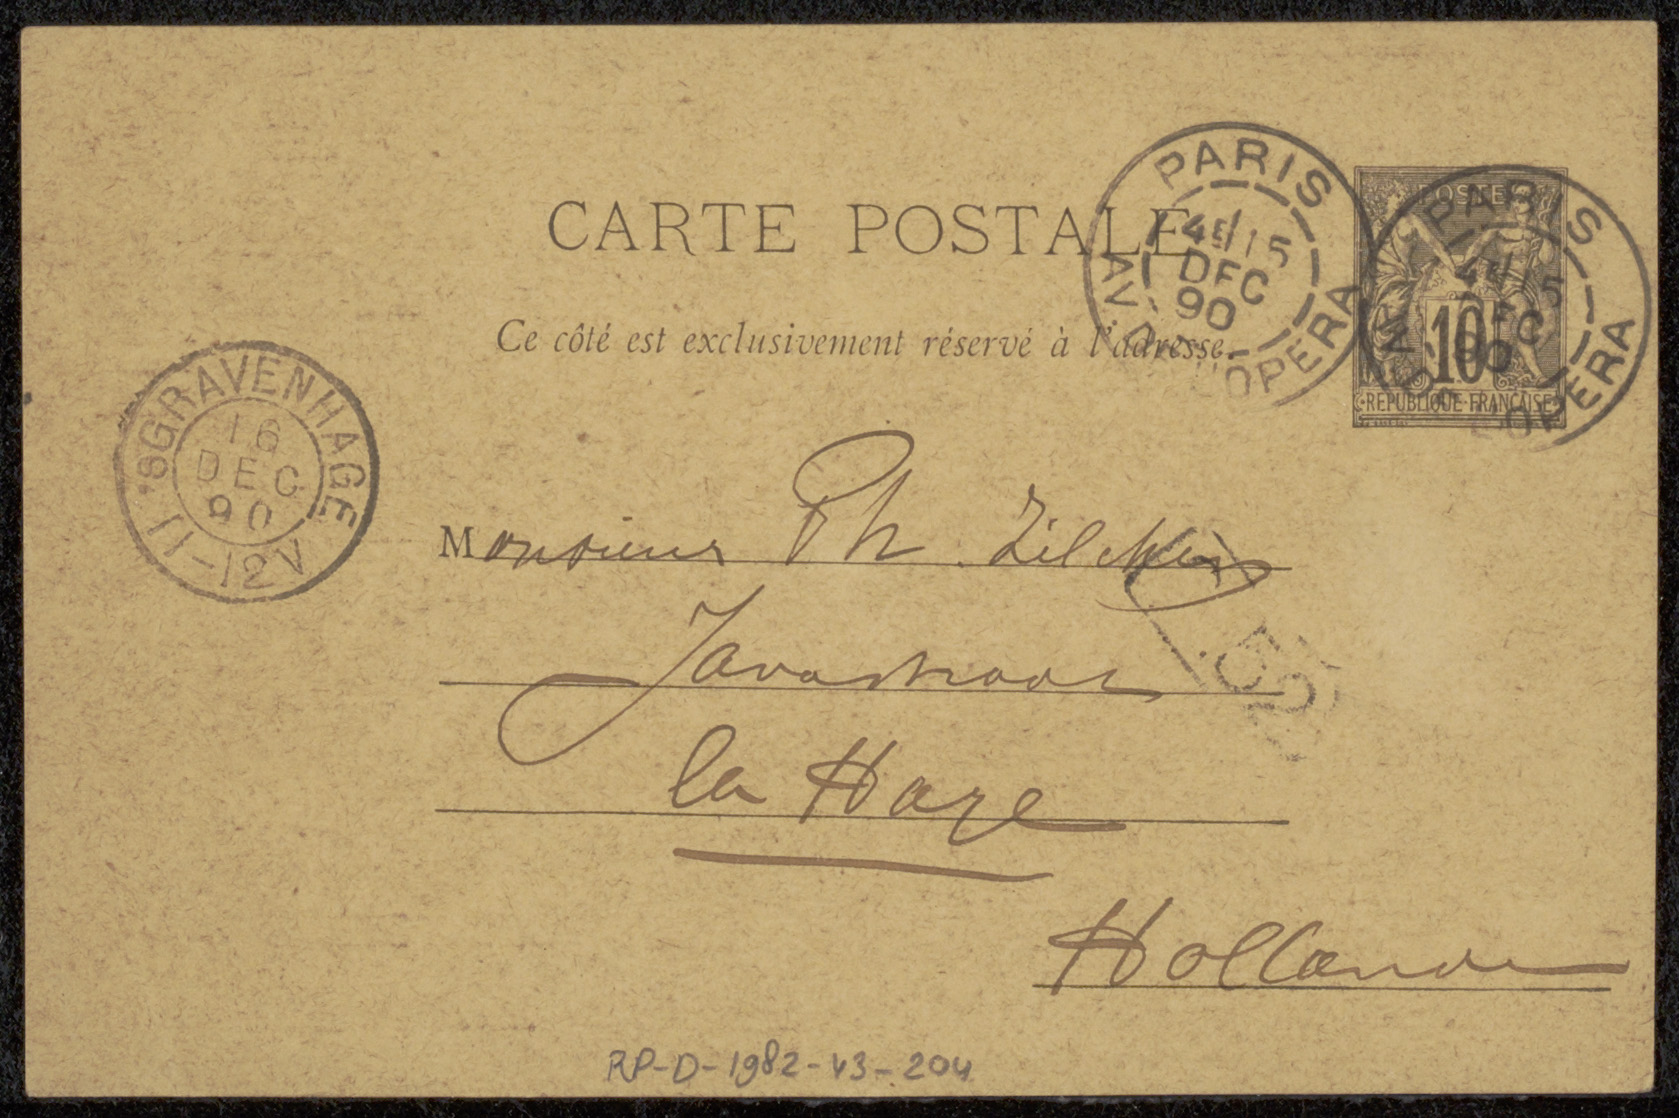 CARTE POSTALE
Ce côté est exclusivement réservé à l'adresse.
PARIS
4E 15
DEC
90
AV. DE L'OPERA
POSTES
10
REPUBLIQUE FRANÇAISE
PARIS
4E 15
DEC
90
AV. DE L'OPERA
'SGRAVENHAGE
16
DEC
90
11-12V
Monsieur Ph. Zilcken
Javastraat
la Haye
Hollande
RP-D-1982-43-204